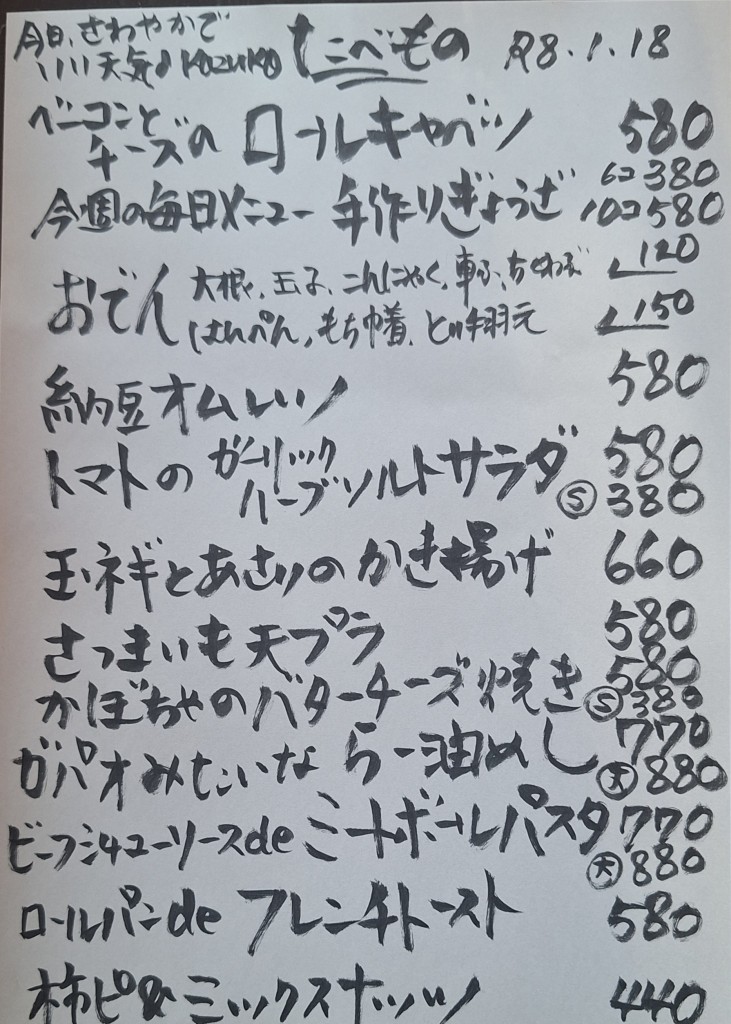 今日、さわやかで たべもの R8.1.18
いい天気♪KOZUKO
ベーコンと
チーズの ロールキャベツ 580
今週の毎日メニュー 手作りぎょうざ 6コ380
10コ580
おでん 大根、玉子、こんにゃく、車ふ、ちくわぶ 120
はんぺん、もち巾着、とり手羽元 150
納豆オムレツ 580
トマトの ガーリック
ハーブソルトサラダ 580
Ⓢ380
玉ネギとあさりのかき揚げ 660
さつまいも天プラ 580
かぼちゃのバターチーズ焼き 580
Ⓢ380
ガパオみたいな らー油めし 770
㊅880
ビーフシチューソースde ミートボールパスタ 770
㊅880
ロールパンde フレンチトースト 580
柿ピ&ミックスナッツ 440